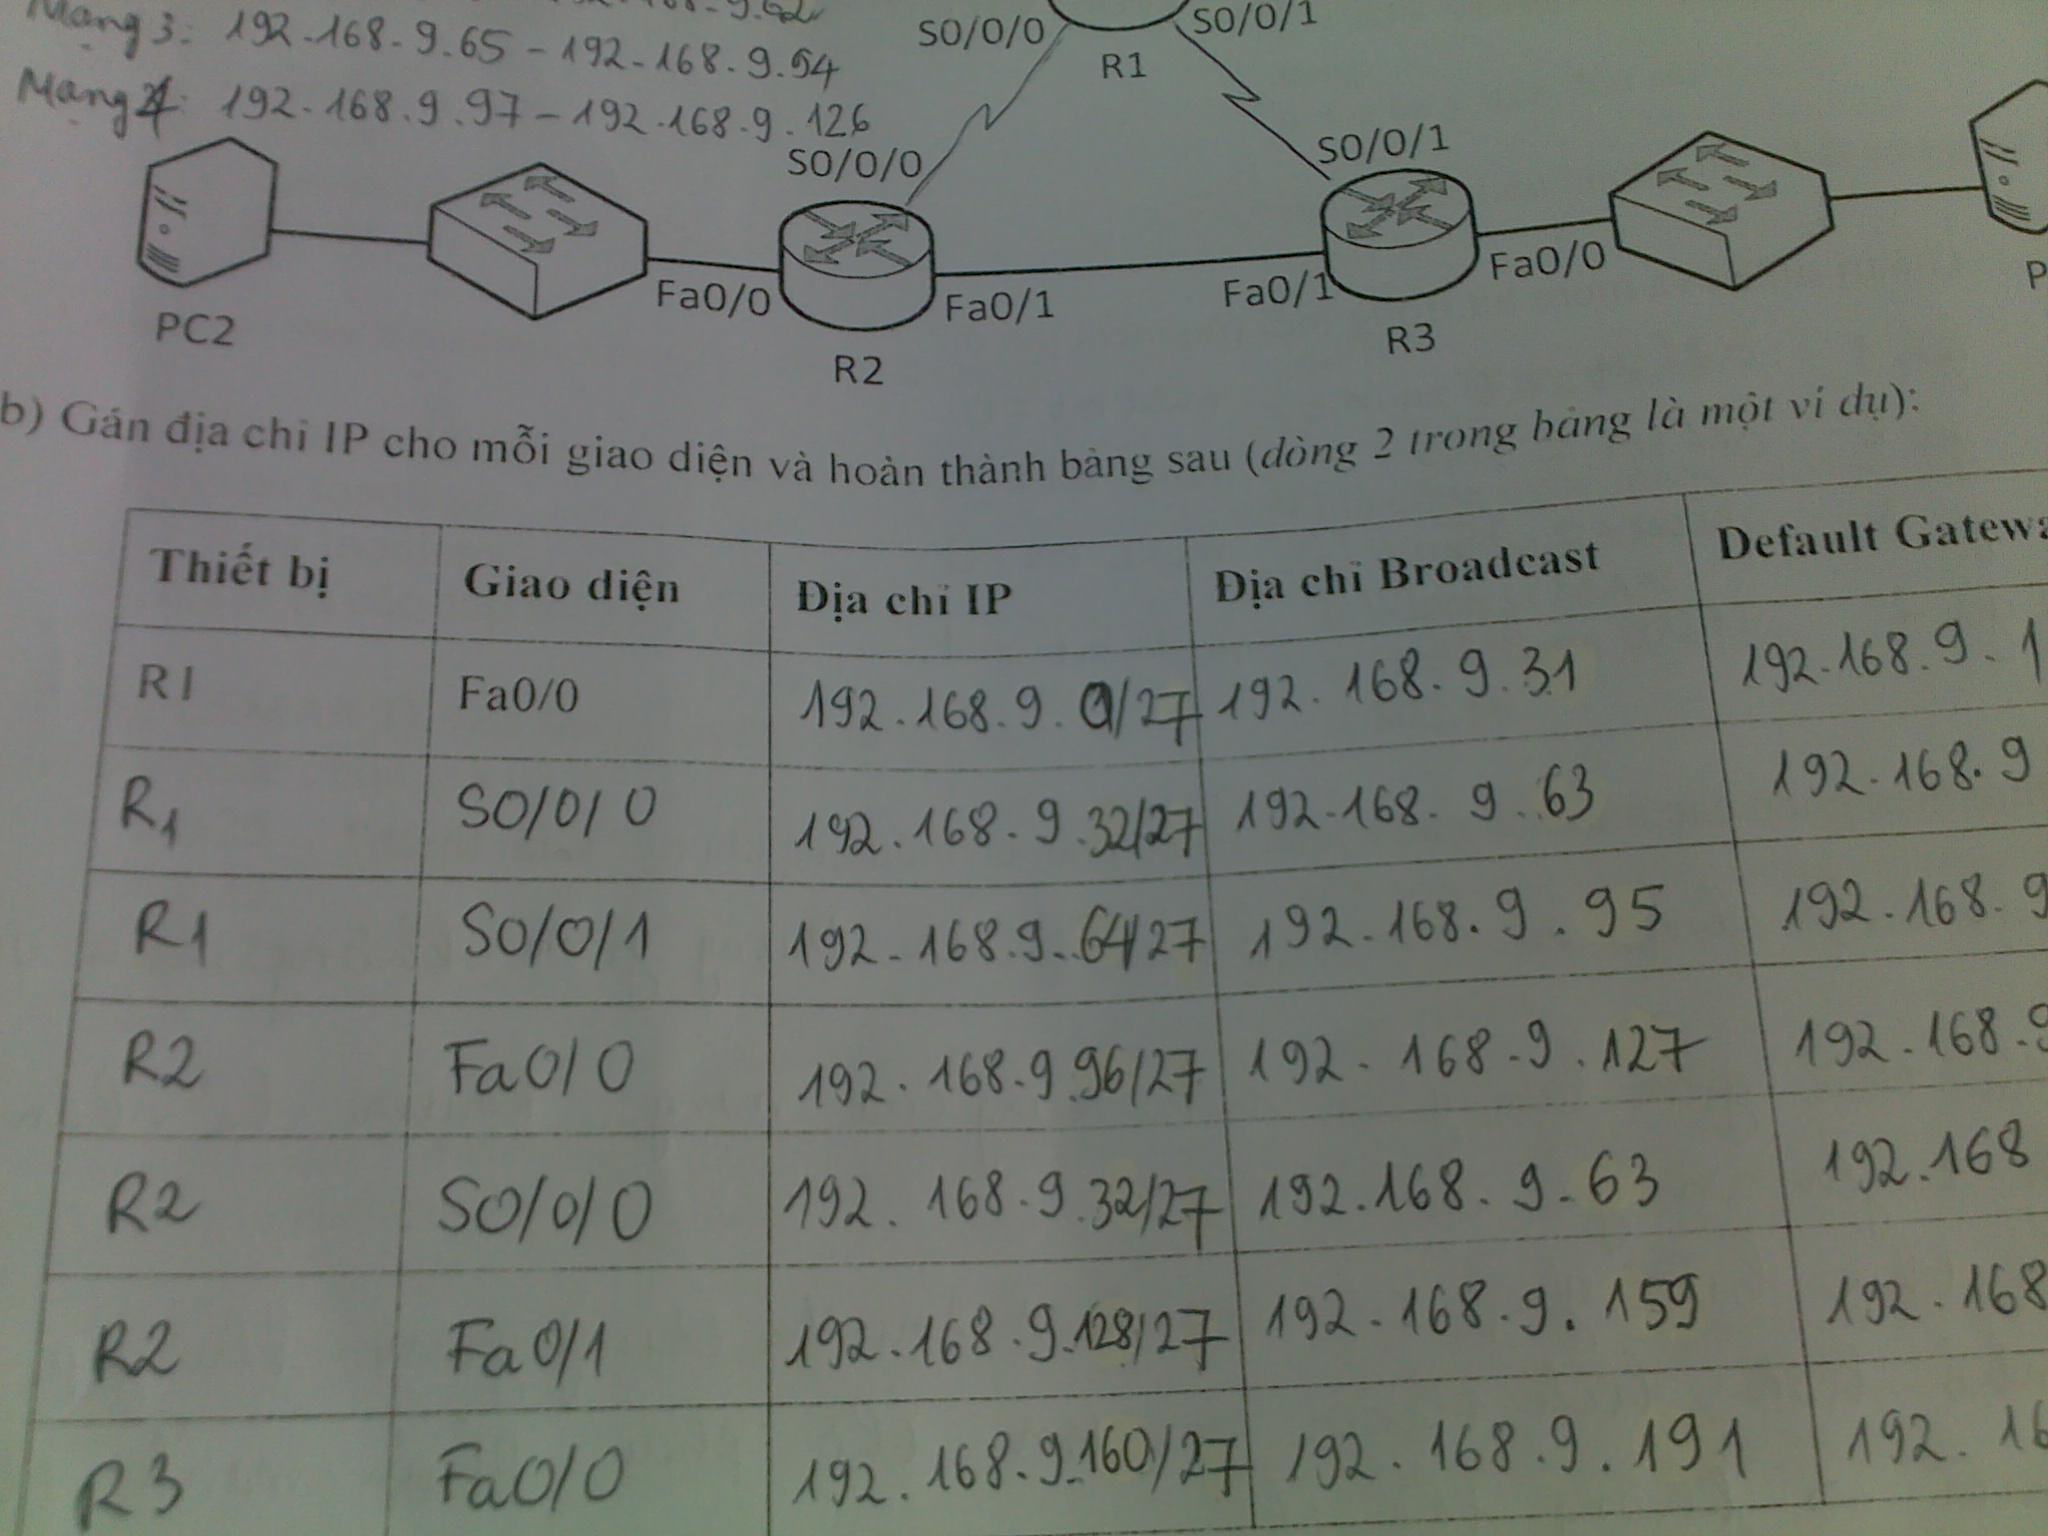 Mạng 3: 192.168.9.65 - 192.168.9.94
Mạng 4: 192.168.9.97 - 192.168.9.126
S0/0/0
S0/0/1
R1
S0/0/0
S0/0/1
Fa0/0
Fa0/1
Fa0/1
Fa0/0
PC2
R2
R3
P
b) Gán địa chỉ IP cho mỗi giao diện và hoàn thành bảng sau (dòng 2 trong bảng là một ví dụ):
Thiết bị Giao diện Địa chỉ IP Địa chỉ Broadcast Default Gatewa
R1 Fa0/0 192.168.9. /27 192.168.9.31 192.168.9.1
R1 S0/0/0 192.168.9.32/27 192.168.9.63 192.168.9
R1 S0/0/1 192.168.9.64/27 192.168.9.95 192.168.9
R2 Fa0/0 192.168.9.96/27 192.168.9.127 192.168.9
R2 S0/0/0 192.168.9.32/27 192.168.9.63 192.168
R2 Fa0/1 192.168.9.128/27 192.168.9.159 192.168
R3 Fa0/0 192.168.9.160/27 192.168.9.191 192.16